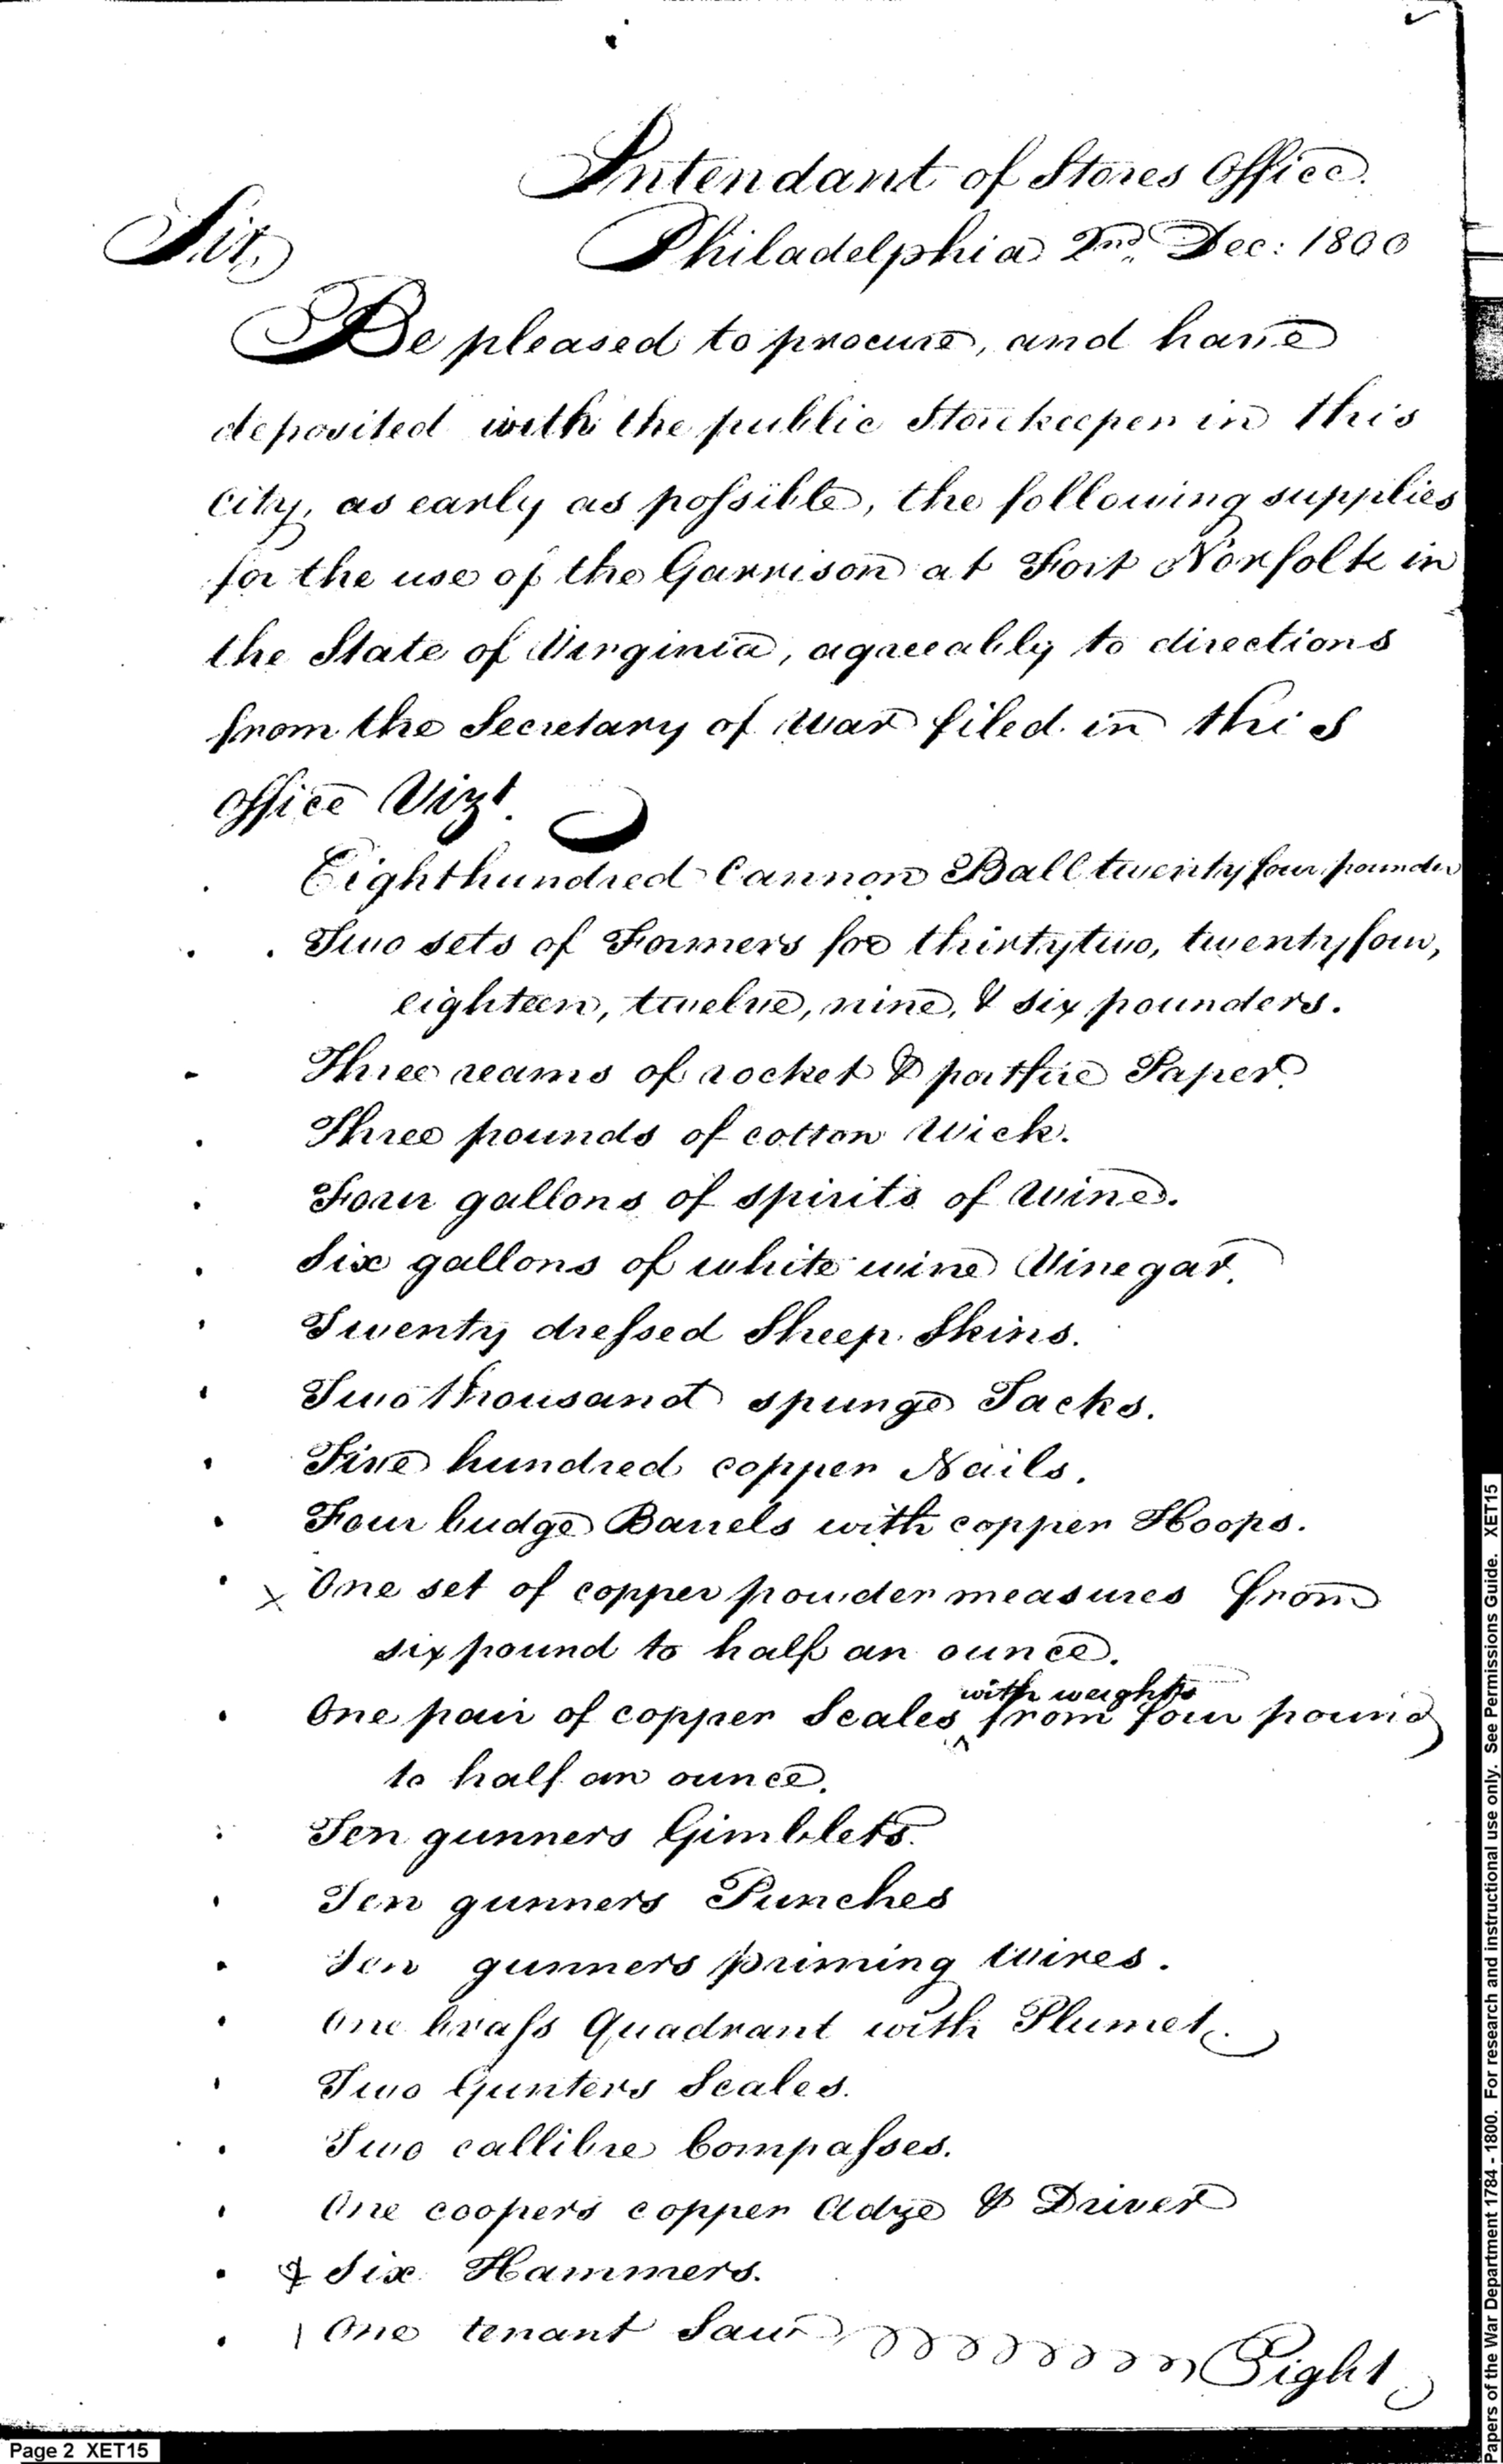 Intendant of Stores Office.
Sir,
Philadelphia 2nd. Dec: 1800
Be pleased to procure, and have
deposited with the public Storekeeper in this
city, as early as possible, the following supplies
for the use of the Garrison at Fort Norfolk in
the State of Virginia, agreeably to directions
from the Secretary of War filed in this
office Vizt.
Eight hundred Cannon Ball twenty four pounder
Two sets of Formers for thirty two, twenty four,
eighteen, twelve, nine, & six pounders.
Three reams of rocket & portfire Paper.
Three pounds of cotton Wick.
Four gallons of spirits of Wine.
Six gallons of white wine Vinegar.
Twenty dressed Sheep Skins.
Two thousand spunge Tacks.
Five hundred copper Nails.
Four budge Barrels with copper Hoops.
x One set of copper powder measures from
six pound to half an ounce.
with weights
One pair of copper Scales ^ from four pound
to half an ounce.
Ten gunners Gimblets.
Ten gunners Punches
Ten gunners priming Wires.
One brass Quadrant with Plumet.
Two Gunters Scales.
Two callibre Compasses.
One coopers copper Adze & Driver
Six Hammers.
One tenant Saw
Eight
Page 2 XET15
Papers of the War Department 1784 - 1800. For research and instructional use only. See Permissions Guide. XET15